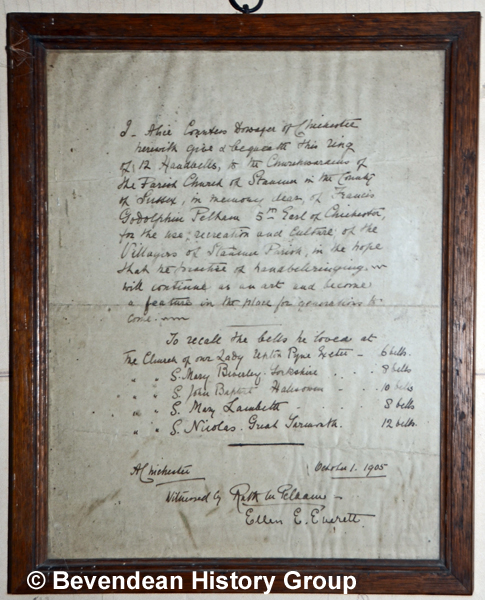 I - Alice Countess Dowager of Chichester
herewith give & bequeath this ring
of 12 Handbells, to the Churchwardens of
the Parish Church of Stanmer in the County
of Sussex, in memory dear, of Francis
Godolphin Pelham 5th Earl of Chichester,
for the use, recreation and culture of the
Villagers of Stanmer Parish, in the hope
that the practice of handbellringing
will continue as an art and become
a feature in the place for generations to
come.
To recall the bells he loved at
The Church of our Lady Upton Pyne Exeter - 6 bells.
" " S. Mary Beverley. Yorkshire 8 bells
" " S. John Baptist Halesowen 10 bells
" " S. Mary Lambeth 8 bells
" " S. Nicolas. Great Yarmouth. 12 bells.
A Chichester October 1. 1905
Witnessed by Ruth M Pelham
Ellen E. Everett.
© Bevendean History Group